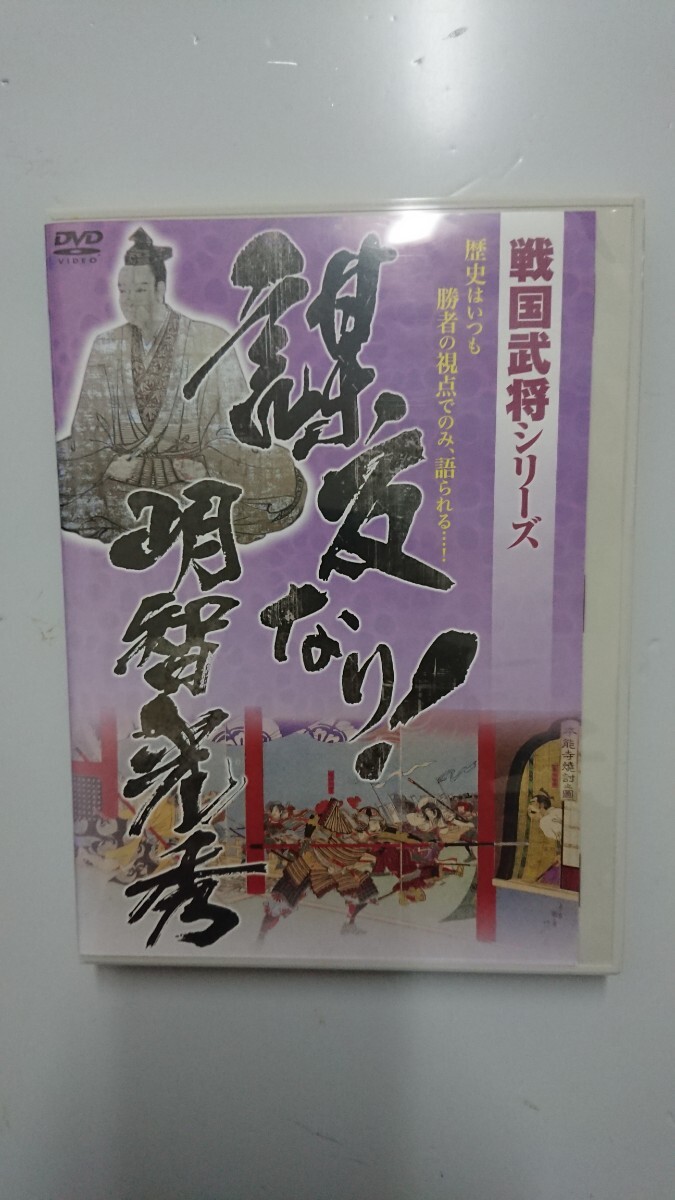 戦国武将シリーズ
歴史はいつも
勝者の視点でのみ、語られる…!
謀反なり!
明智光秀
DVD
VIDEO
本能寺焼討之図